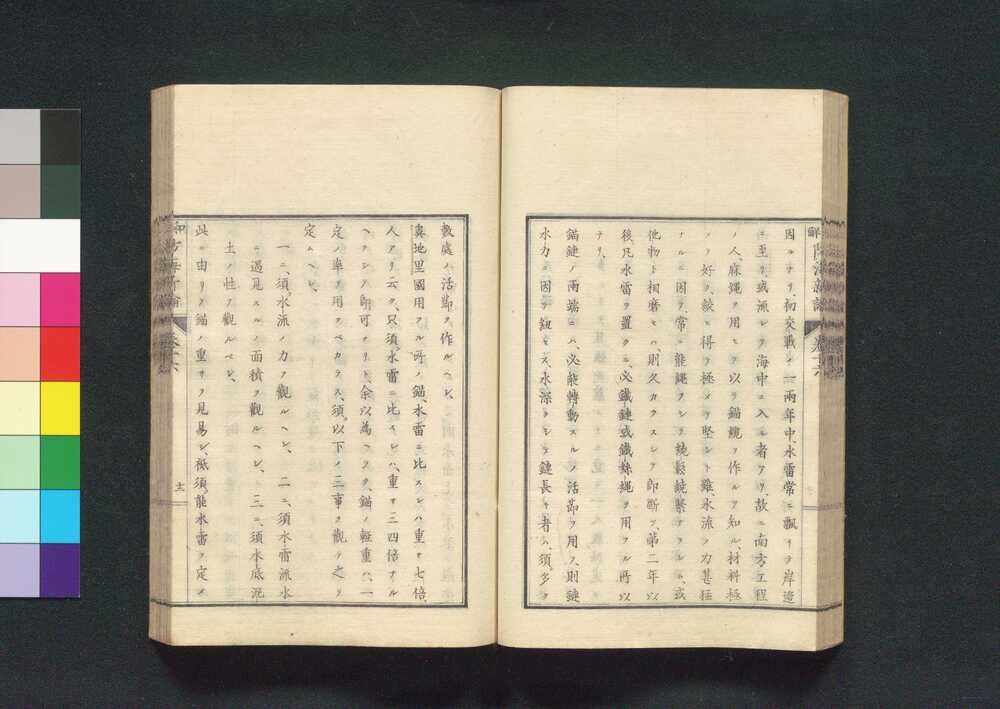 因ルナリ、初交戰ノ一兩年中、水雷常ニ飄リテ岸邊
ニ至リ或派レテ海中ニ入ル者アリ、故ニ南方工程
ノ人、麻繩ヲ用ヒテ以テ錨鏈ヲ作ルヲ知ル、材料極
メテ好ク、絞ヒ得テ極メテ堅シト雖、水流ノ力甚猛
ナルニ因テ、常ニ能繩ヲシテ繞鬆繞緊ナラシム、或
他物ト相磨セハ、則久カラスシテ卽斷ツ、第二年以
後凡水雷ヲ置クニ、必鐵鏈或鐵絲繩ヲ用フル所以
ナリ、
錨鏈ノ兩端ニハ、必能轉動スルノ活節ヲ用フ、則鏈
水力ニ因テ紐セス、水深クシテ鏈長キ者ハ、須多ク
數處ノ活節ヲ作ルヘシ、
奧地里國用フル所ノ錨、水雷ニ比スレハ重サ七倍、
人アリ云ク、只須水雷ニ比スレハ、重サ三四倍ナル
ヘクシテ卽可ナリト、余以為ヘラク、錨ノ輕重ハ、一
定ノ率ヲ用フベカラス、須以下ノ三事ヲ觀テ之ヲ
定ムヘシ、
一ニ、須水派ノ力ヲ觀ルヘシ、 二ニ、須水雷派水
ニ遇見スルノ面積ヲ觀ルヘシ、 三ニ、須水底泥
土ノ性ヲ觀ルベシ、
此ニ由リテ錨ノ重サヲ見易シ、祗須能水雷ヲ定メ
十一